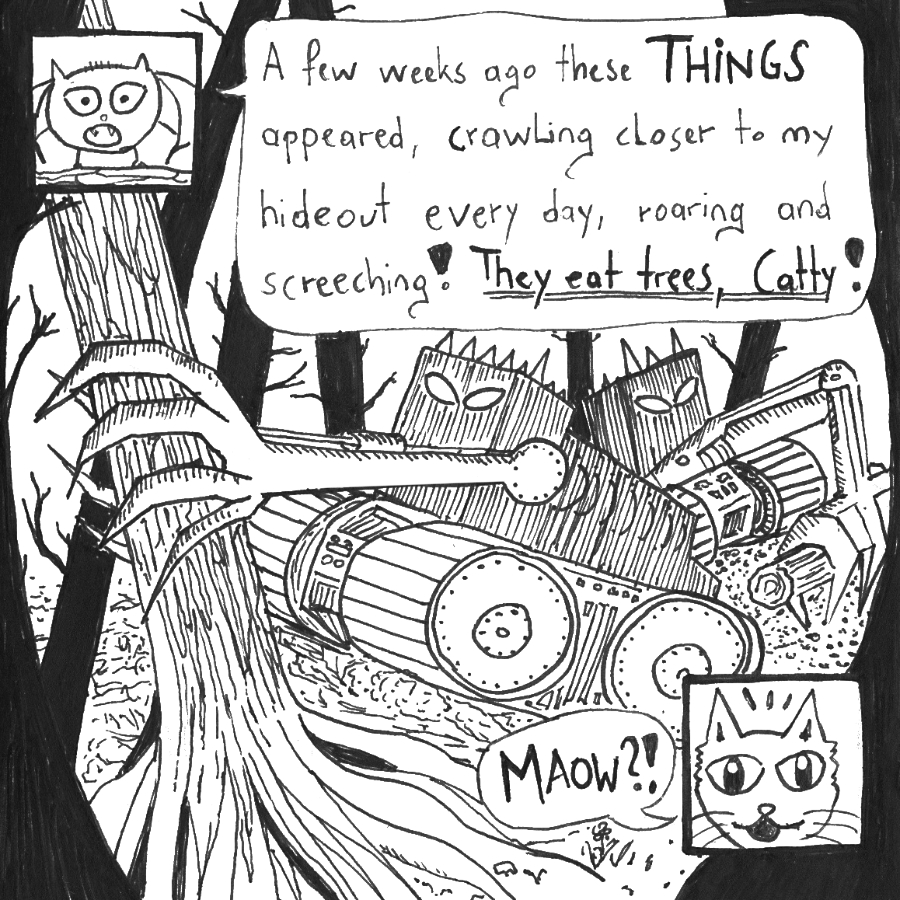 A few weeks ago these THiNGS
appeared, crawling closer to my
hideout every day, roaring and
screeching! They eat trees, Catty!
MAOW?!